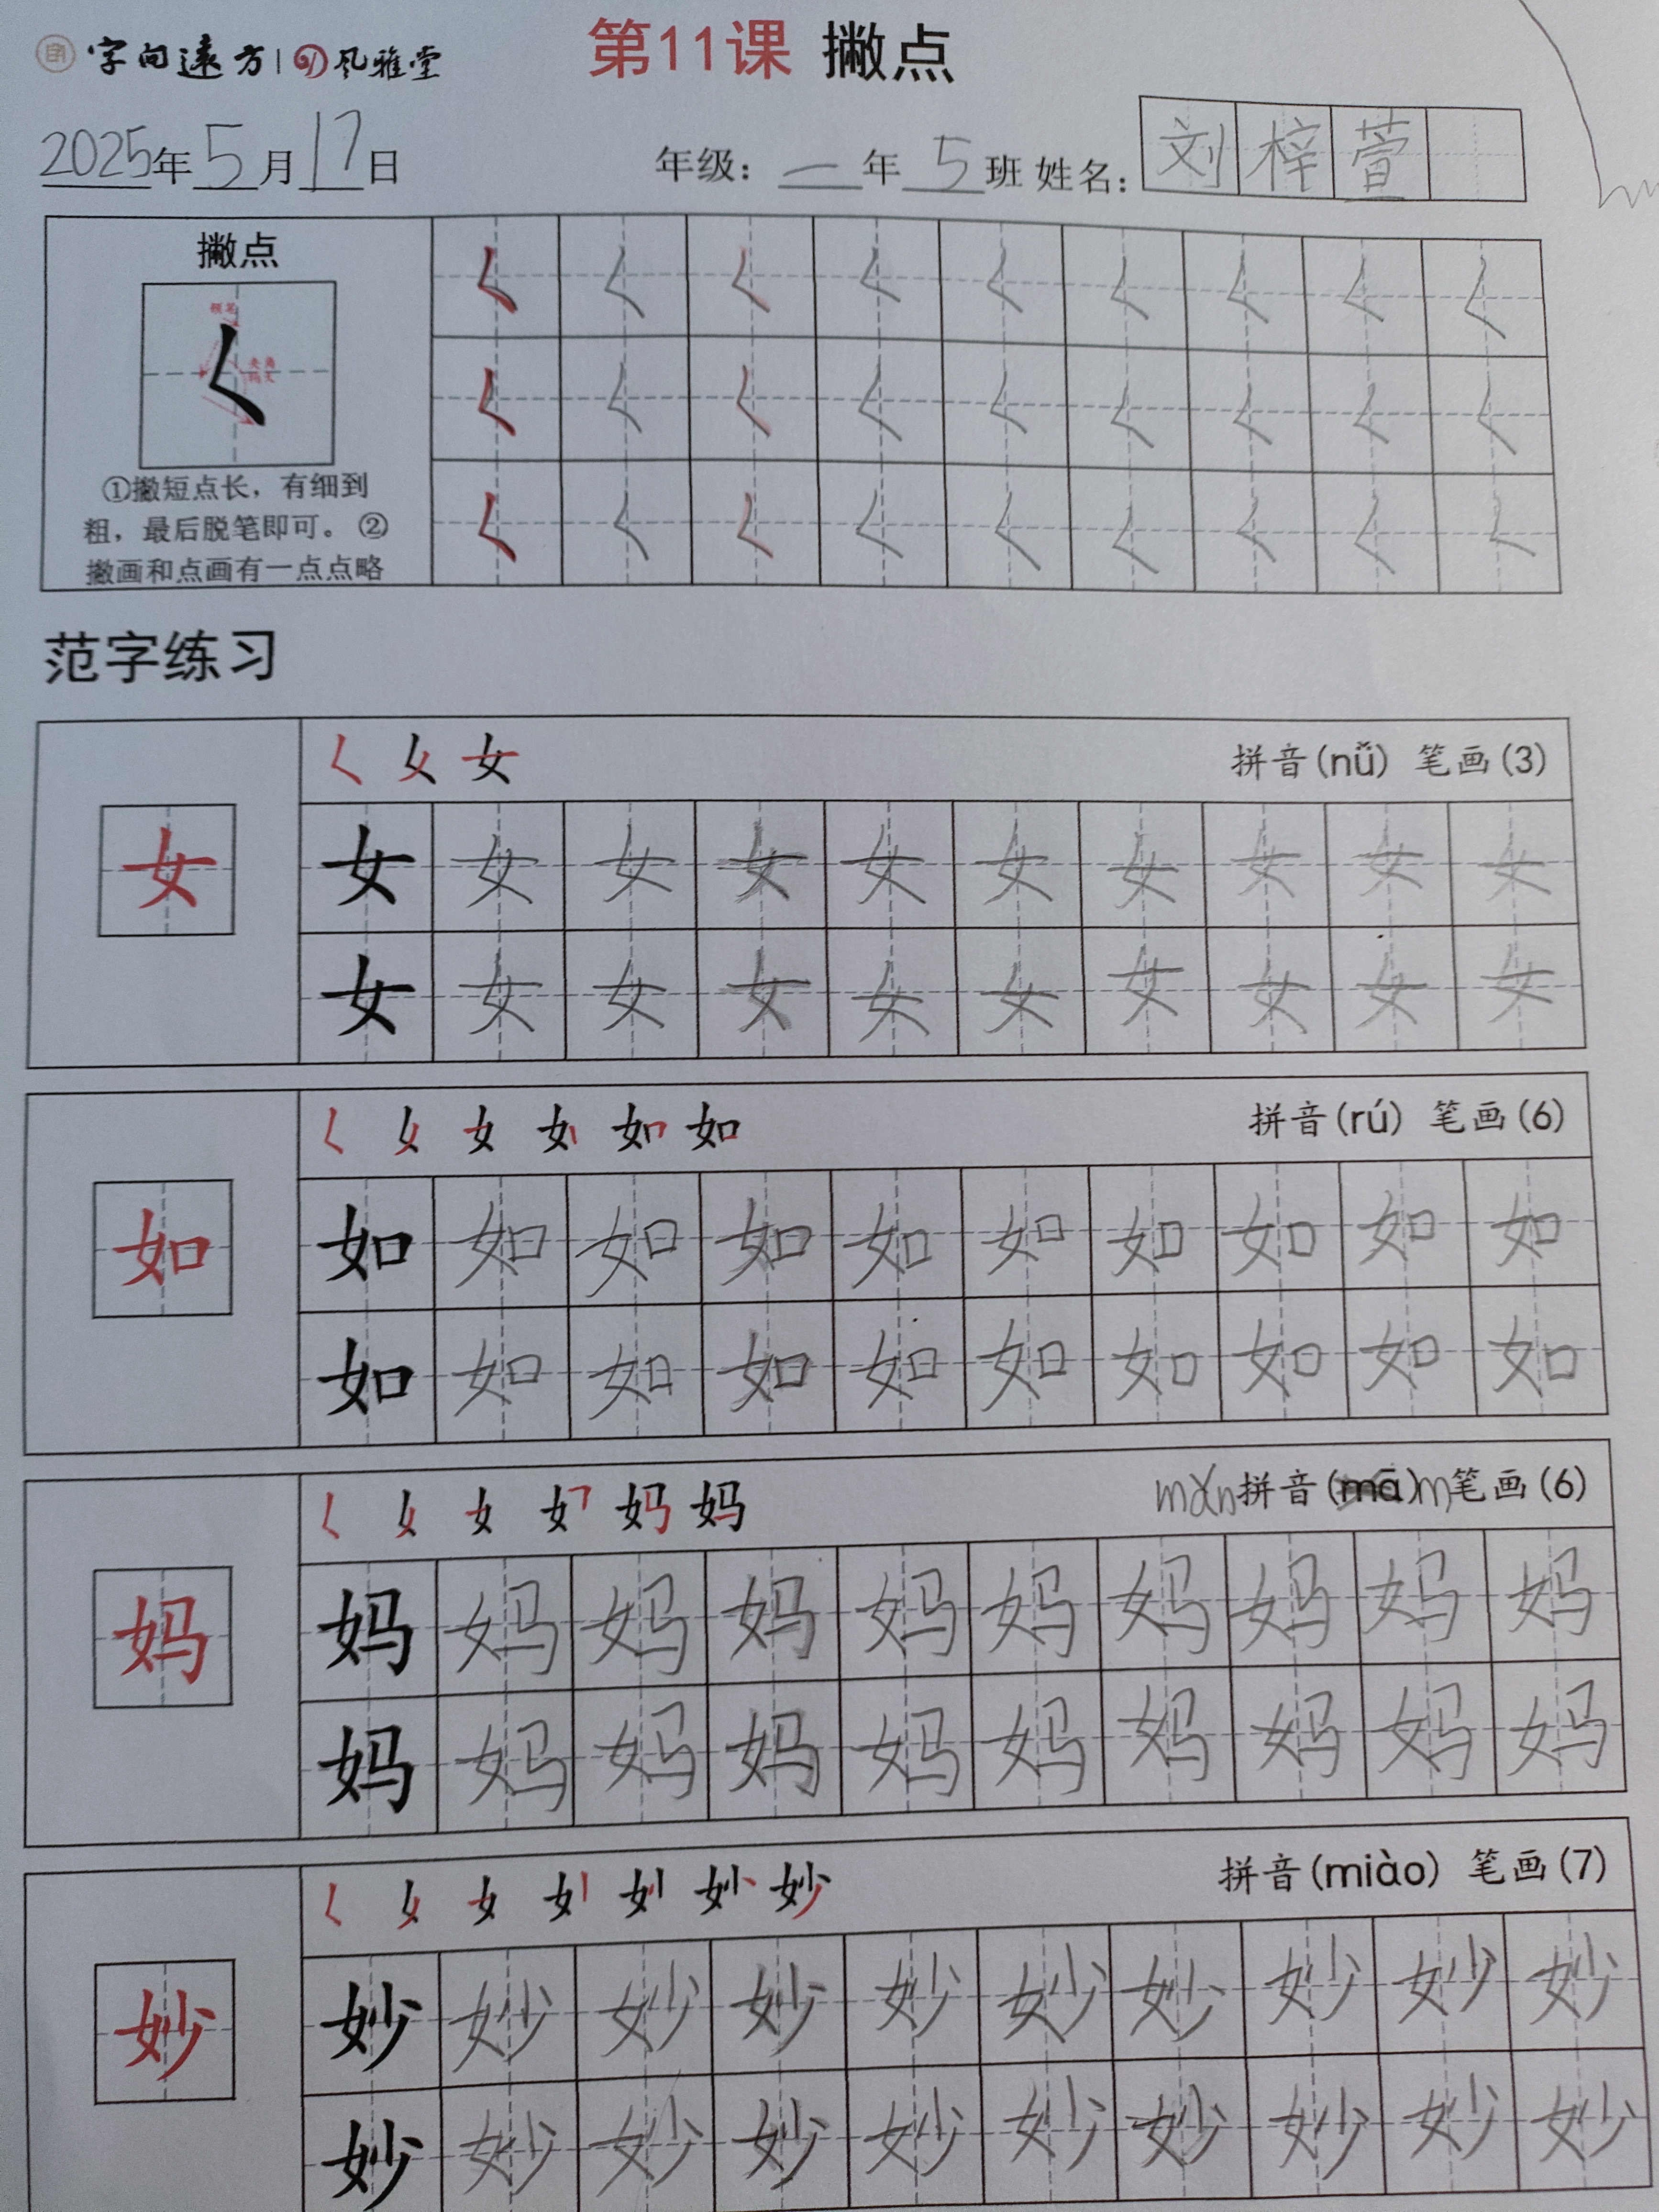 字向遠方 风雅堂
第11课 撇点
2025年5月17日 年级：一年5班 姓名：刘梓萱
撇点
①撇短点长，有细到
粗，最后脱笔即可。②
撇画和点画有一点点略
𡿨 𡿨 𡿨 𡿨 𡿨 𡿨 𡿨 𡿨 𡿨
𡿨 𡿨 𡿨 𡿨 𡿨 𡿨 𡿨 𡿨 𡿨
𡿨 𡿨 𡿨 𡿨 𡿨 𡿨 𡿨 𡿨 𡿨
范字练习
女 拼音(nǚ) 笔画(3)
女
女 女 女 女 女 女 女 女 女 女
女 女 女 女 女 女 女 女 女 女
如 拼音(rú) 笔画(6)
如
如 如 如 如 如 如 如 如 如 如
如 如 如 如 如 如 如 如 如 如
妈 拼音(mā) 笔画(6)
妈
妈 妈 妈 妈 妈 妈 妈 妈 妈 妈
妈 妈 妈 妈 妈 妈 妈 妈 妈 妈
妙 拼音(miào) 笔画(7)
妙
妙 妙 妙 妙 妙 妙 妙 妙 妙 妙
妙 妙 妙 妙 妙 妙 妙 妙 妙 妙